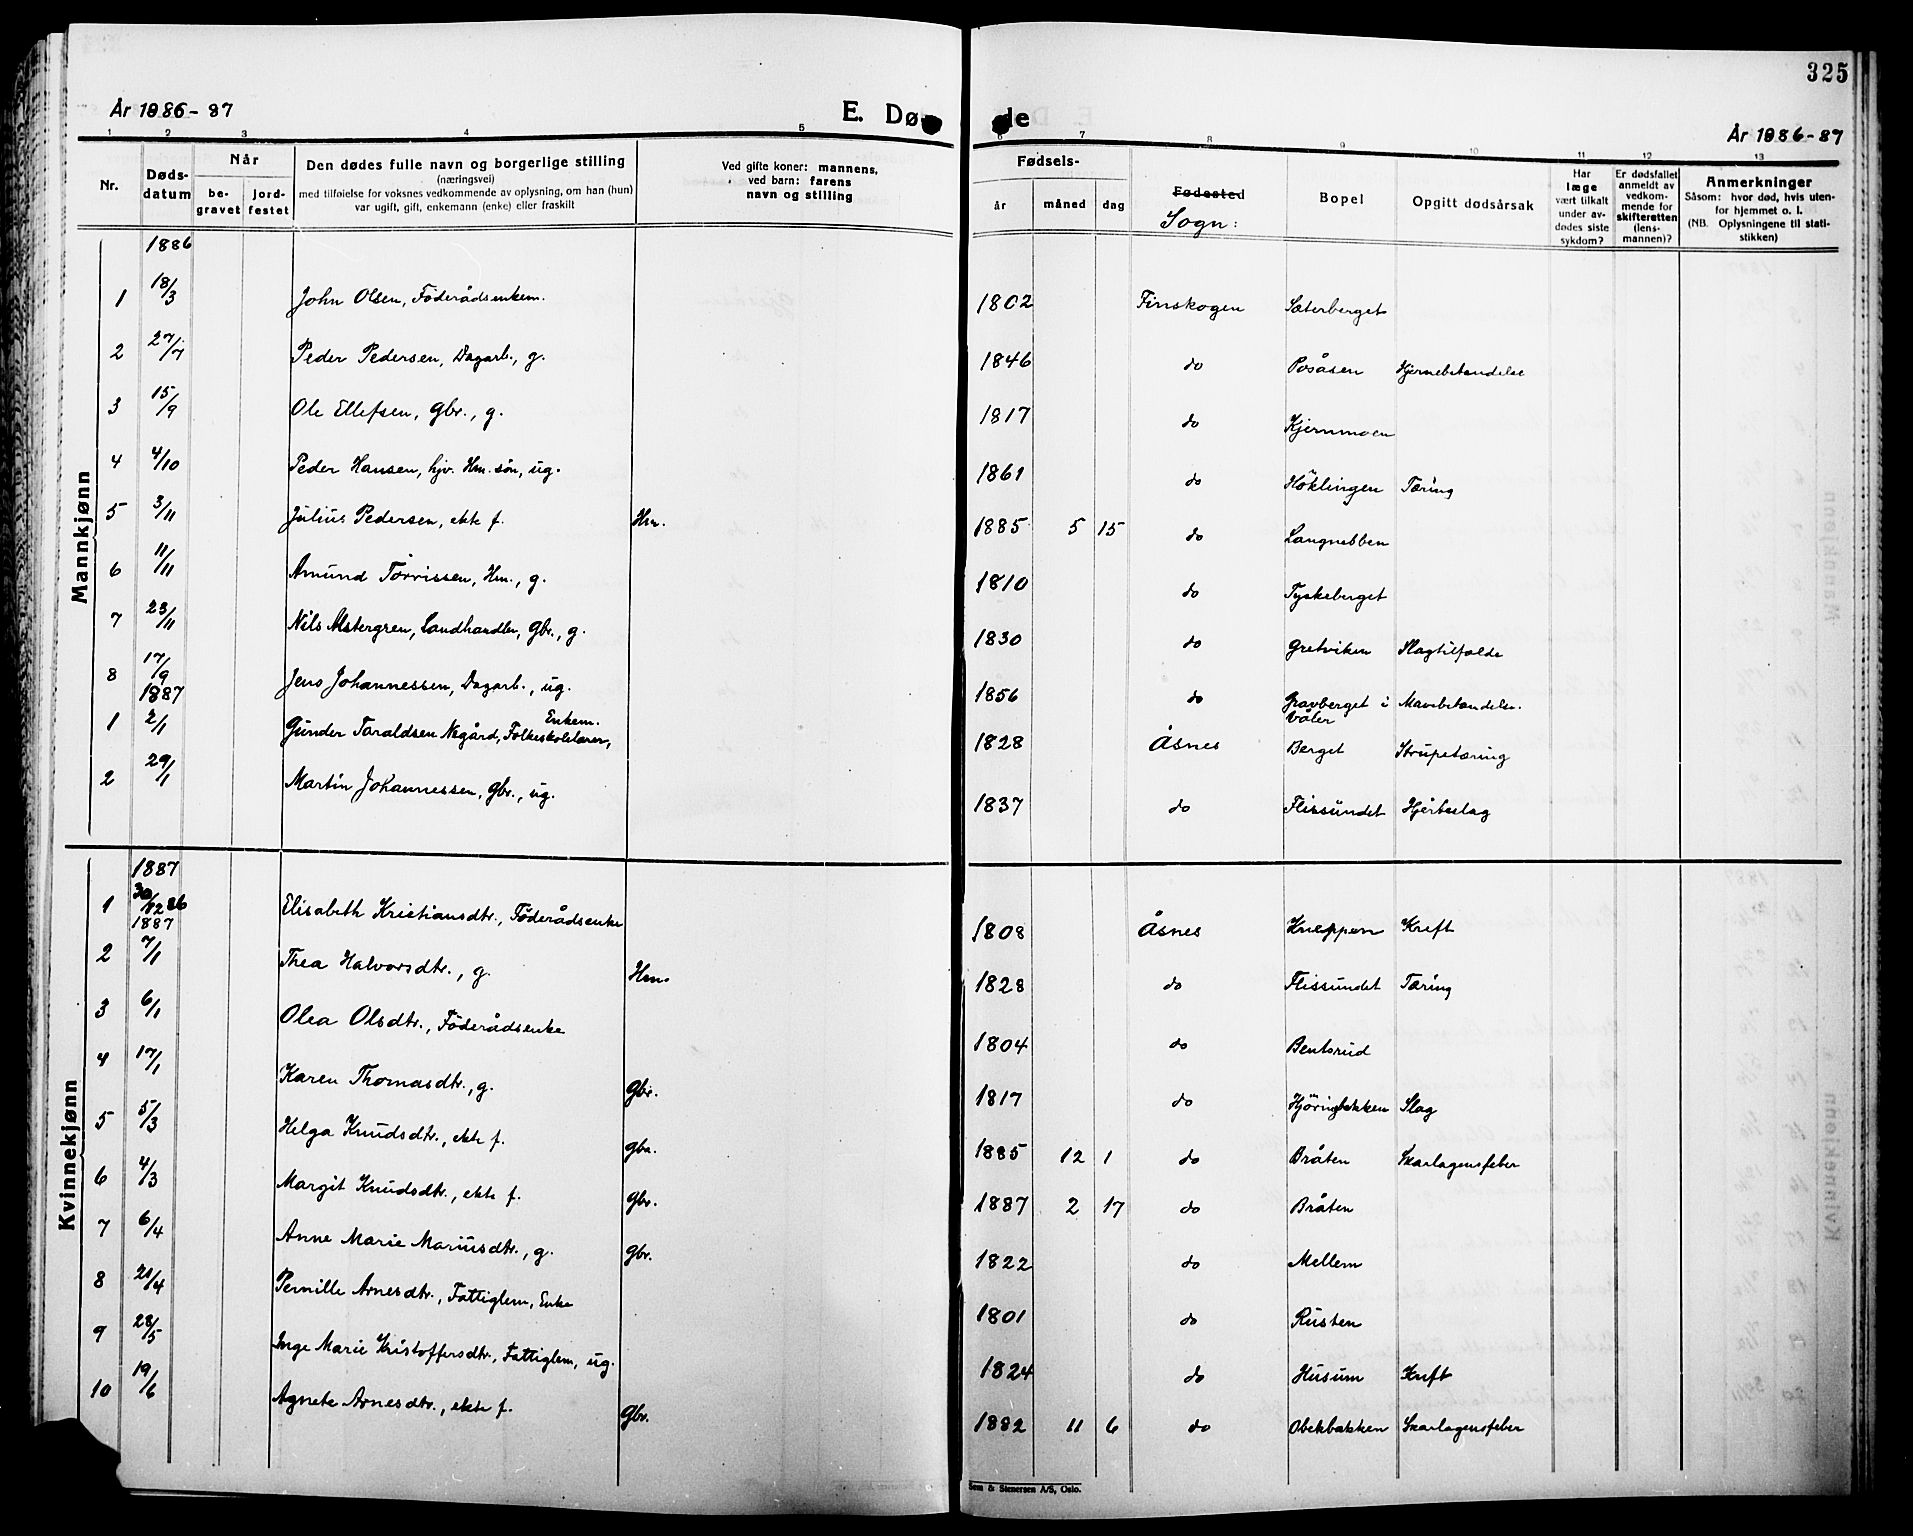 325
År 1886-87 E. Døde År 1886-87
1 2 3 4 5 6 7 8 9 10 11 12 13
Nr. Døds-datum Når be-gravet jord-festet Den dødes fulle navn og borgerlige stilling (næringsvei) med tilføielse for voksnes vedkommende av oplysning, om han (hun) var ugift, gift, enkemann (enke) eller fraskilt Ved gifte koner: mannens, ved barn: farens navn og stilling Fødsels- år måned dag Fødested Sogn: Bopel Opgitt dødsårsak Har læge vært tilkalt under av-dødes siste sykdom? Er dødsfallet anmeldt av vedkom-mende for skifteretten (lens-mannen)? Anmerkninger Såsom: hvor død, hvis uten-for hjemmet o. l. (NB. Oplysningene til stati-stikken)
Mannkjønn
1886
1 18/3 John Olsen, Föderådsenkem. 1802 Finskogen Sæterberget
2 27/7 Peder Pedersen, Dagarb., g. 1846 do Posåsen Hjernebetændelse
3 15/9 Ole Ellefsen, Gbr., g. 1817 do Kjernmoen
4 4/10 Peder Hansen, hjv. Hm. sön, ug. 1861 do Höklingen Tæring
5 3/11 Julius Pedersen, ekte f. Hm. 1885 5 15 do Langnebben
6 11/11 Amund Torrissen, Hm., g. 1810 do Tyskeberget
7 23/11 Nils Alstergren, Landhandler, Gbr., g. 1830 do Gretviken Slagtilfælde
8 17/9 Jens Johannessen, Dagarb., ug. 1856 do Gravberget i Våler Mavebetændelse.
1887
1 2/1 Gunder Taraldsen Negård, Folkeskolelærer, Enkem. 1828 Åsnes Berget Strupetæring
2 29/1 Martin Johannessen, Gbr., ug. 1837 do Flissundet Hjerteslag
Kvinnekjønn
1887
1 30/12 86 Elisabeth Kristiansdtr., Föderådsenke 1808 Åsnes Kneppen Kreft
1887
2 7/1 Thea Halvorsdtr., g. Hm. 1828 do Flissundet Tæring
3 6/1 Olea Olsdtr., Föderådsenke 1804 do Bentsrud
4 17/1 Karen Thomasdtr., g. Gbr. 1817 do Hjöringbakken Slag
5 5/3 Helga Knudsdtr., ekte f. Gbr. 1885 12 1 do Bråten Skarlagensfeber
6 4/3 Margit Knudsdtr., ekte f. Gbr. 1887 2 17 do Bråten
7 6/4 Anne Marie Mariusdtr., g. Gbr. 1822 do Mellem
8 21/4 Pernille Arnesdtr., Fattiglem, Enke 1801 do Rusten
9 28/5 Inge Marie Kristoffersdtr., Fattiglem, ug. 1824 do Husum Kreft
10 19/6 Agnete Arnesdtr., ekte f. Gbr. 1882 11 6 do Obekbakken Skarlagensfeber
Sem & Stenersen A/S, Oslo.